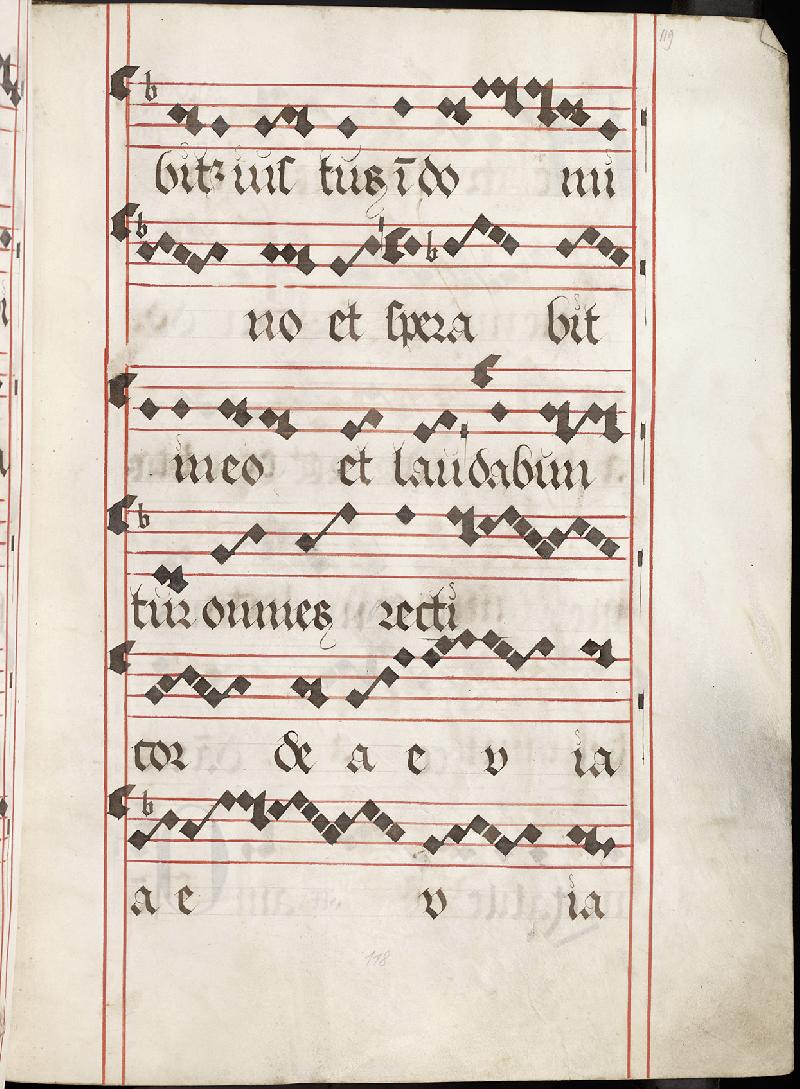 119
bitꝛ iuſ tus ī do mi
no et ſpera bit
in eo et laudabun
tur omnes recti
cor de a e v ia
a e v ia
118